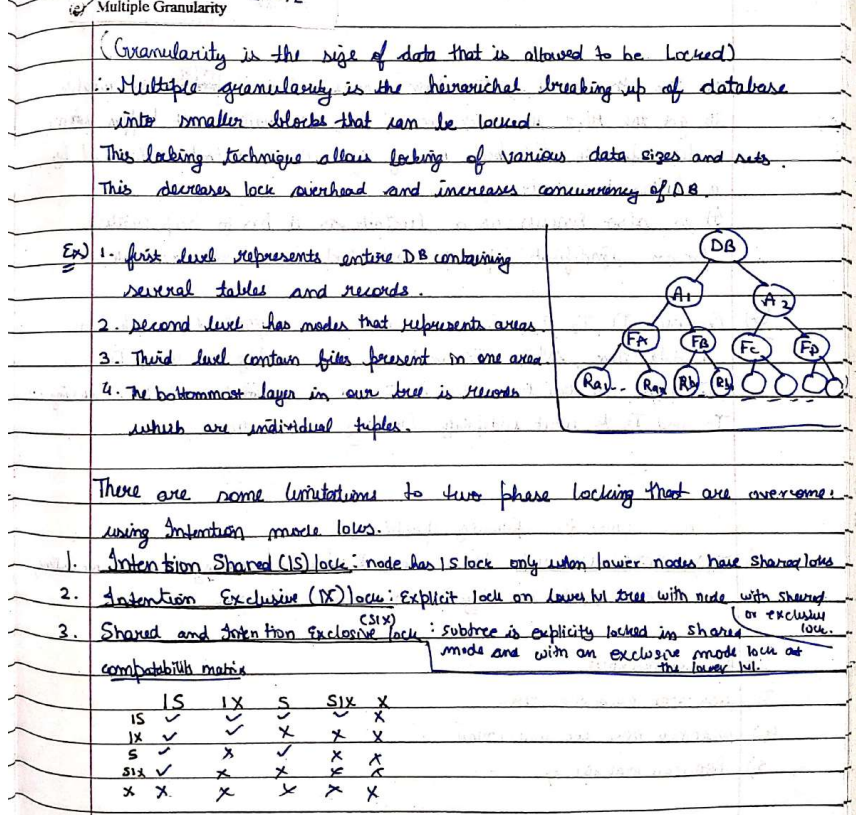 (e) Multiple Granularity
(Granularity is the size of data that is allowed to be Locked)
∴ Multiple granularity is the heirarichal breaking up of database
into smaller blocks that can be locked.
This locking technique allows locking of various data sizes and sets.
This decreases lock overhead and increases concurrency of DB.
Ex) 1. first level represents entire DB containing
several tables and records.
2. second level has nodes that represents areas.
3. Third level contain files present in one area.
4. The bottommost layer in our tree is records
which are individual tuples.
DB
A1 A2
FA FB FC FD
Ra1... Rb Rb
There are some limitations to two phase locking that are overcome
using Intention mode locks.
1. Intention Shared (IS) lock: node has IS lock only when lower nodes have Shared locks
2. Intention Exclusive (IX) lock: Explicit lock on lower lvl tree with node with shared
or exclusive lock.
3. Shared and Intention Exclosive (SIX) lock: subtree is explicity locked in shared
mode and with an exclusive mode lock at
the lower lvl.
compatability matrix
IS IX S SIX X
IS ✓ ✓ ✓ ✓ ✗
IX ✓ ✓ ✗ ✗ ✗
S ✓ ✗ ✓ ✗ ✗
SIX ✓ ✗ ✗ ✗ ✗
X ✗ ✗ ✗ ✗ ✗